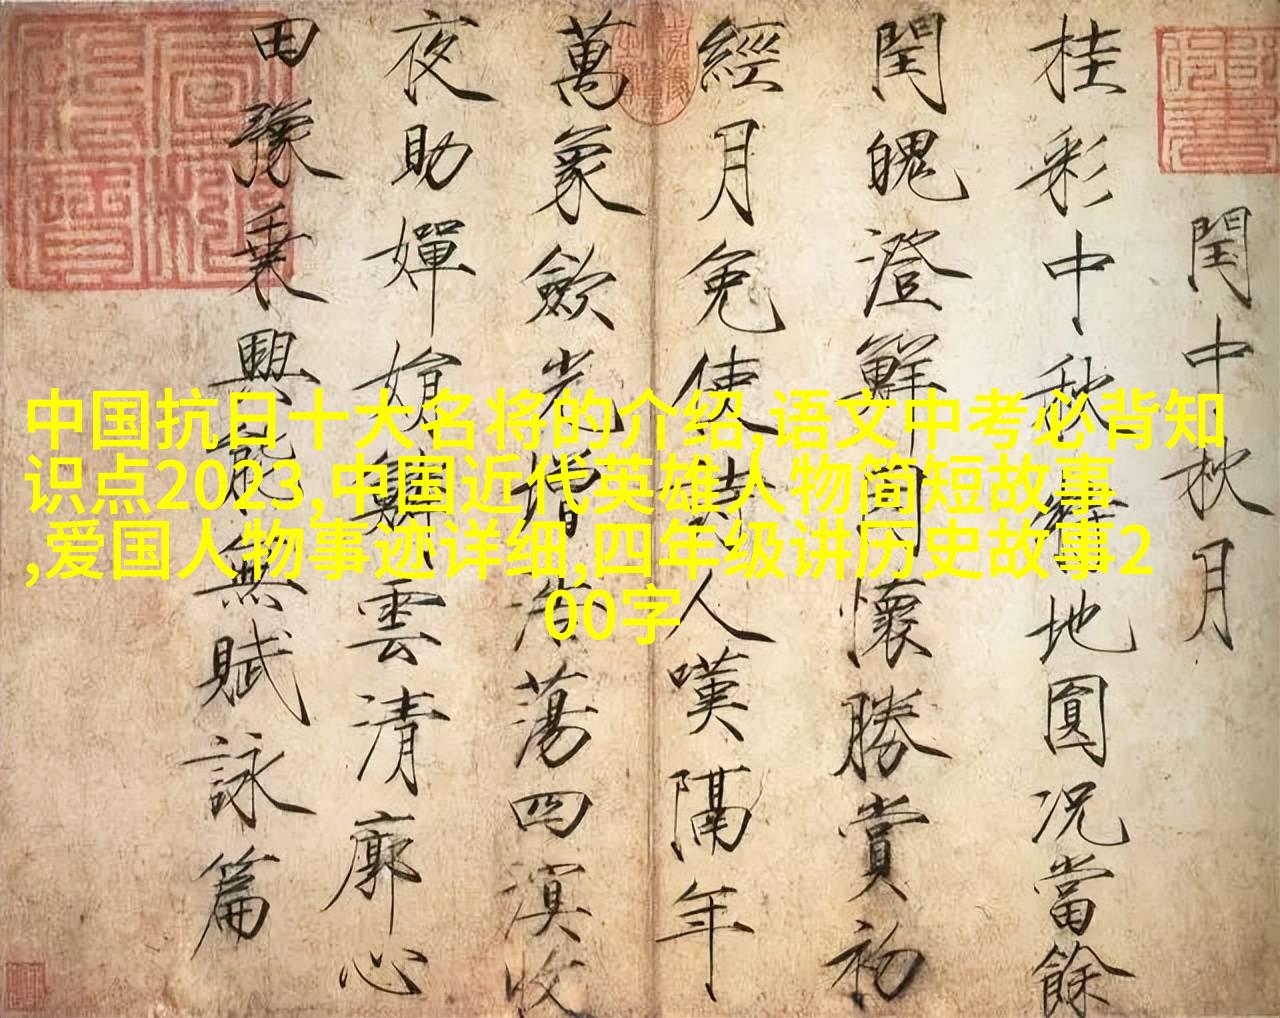 中国抗日十大名将的介绍,语文中考必背知
识点2023,中国近代英雄人物简短故事
,爱国人物事迹详细,四年级讲历史故事2
00字
閏中秋月
桂彩中秋特地圓況當餘
閏魄澄鮮因懷勝賞初
經月免使詩人嘆隔年
萬象歛光增浩蕩四溟收
夜助嬋娟雲清廓心
田豫乗興能無賦詠篇